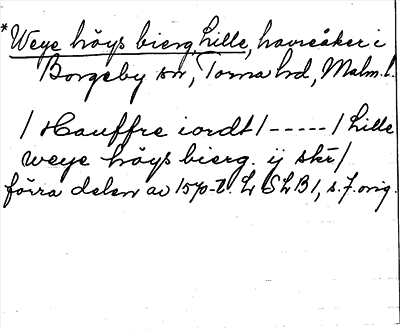 *Weye höys bierg, Lille, havreåker i
Borgeby sn, Torna hd, Malm. l.
/ Hauffre iordt / ----- / Lille
weye höys bierg. ij skr /
förra delen av 1570-t. L SLB 1, s. 7. orig.